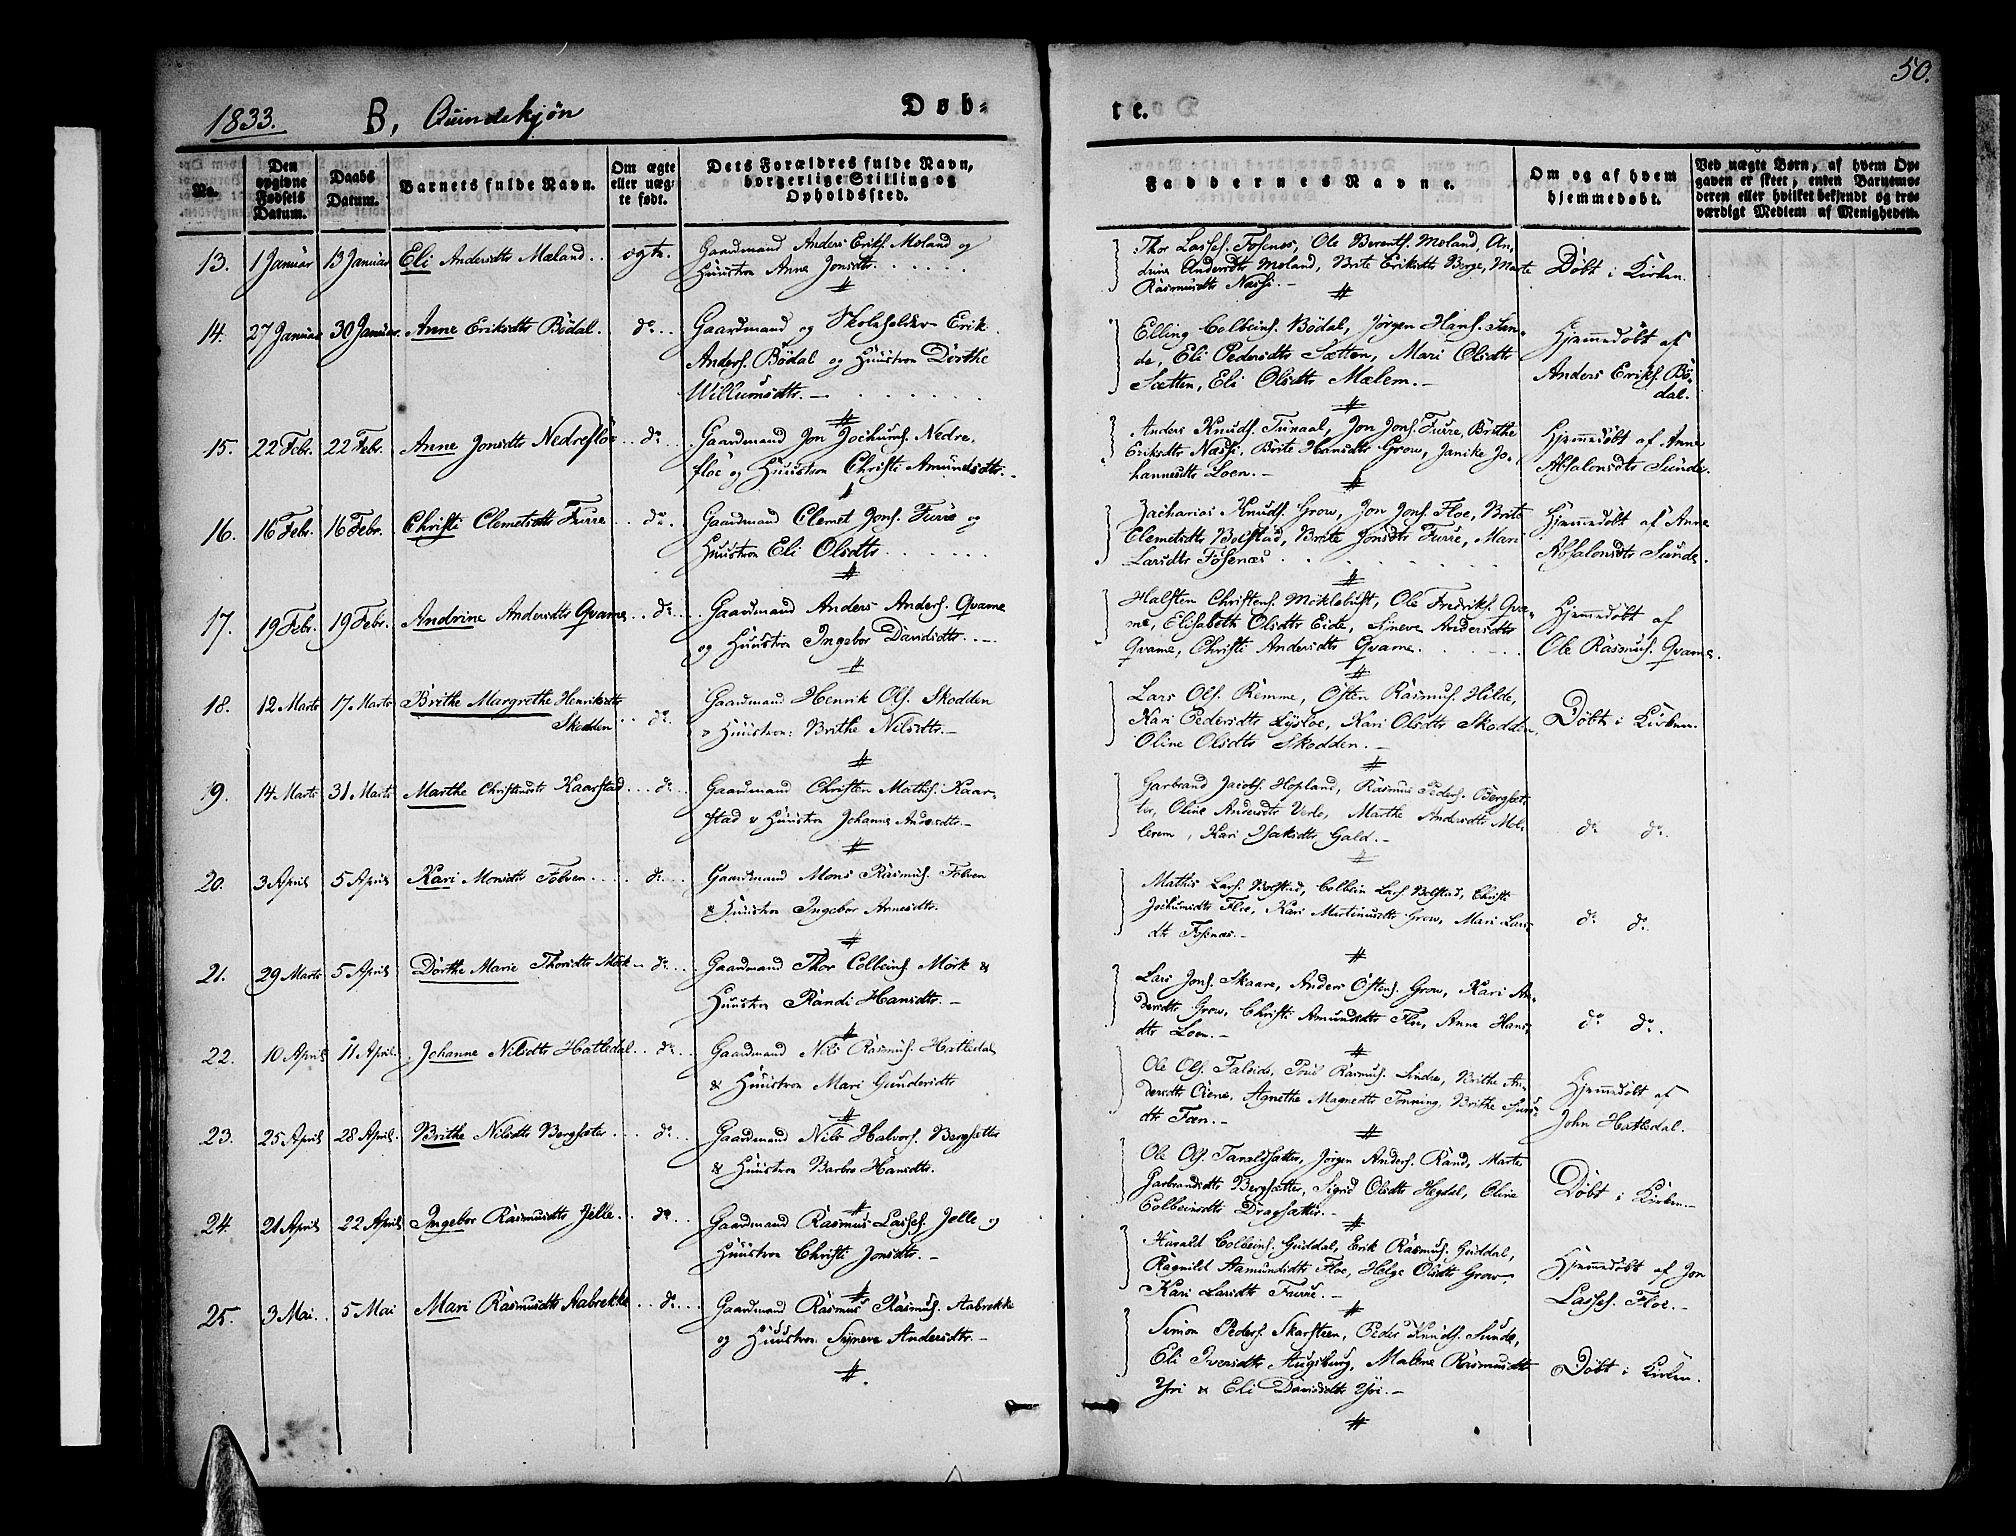 50.
1833. B, Quindekjøn Døb- te.
No.
Den opgivne Fødsels Datum.
Daabs Datum.
Barnets fulde Navn.
Om ægte eller uægte født.
Dets Forældres fulde Navn, borgerlige Stilling og Opholdssted.
Faddernes Navne.
Om og af hvem hjemmedøbt.
Ved uægte Børn, af hvem Opgaven er skeet, enten Barnemoderen eller hvilket bekjendt og troværdigt Medlem af Menigheden.
13. 1 Januar 13 Januar Eli Andersdtr Mæland. ægte.
Gaardmand Anders Eriks. Moland og
Huustroe Anne Jonsdtr.
Thor Lasses. Fosenes, Ole Berents. Moland, An-
drine Andersdtr Moland, Brite Eriksdtr Berge, Marte
Rasmusdtr Nassi.-
Døbt i Kirken.
14. 27 Januar 30 Januar Anne Eriksdtr Bödal. do
Gaardmand og Skoleholder Erik
Anders. Bödal og Huustroe Dorthe
Willumsdtr.-
Elling Colbeins. Bödal, Jørgen Hans. Sun-
de, Eli Pedersdtr Sætten, Mari Olsdtr
Sætten, Eli Olsdtr Mælem.-
Hjemmedøbt af
Anders Eriks. Bö-
dal.
15. 22 Febr. 22 Febr. Anne Jonsdtr Nedrefloe do
Gaardmand Jon Jochums. Nedre-
floe og Huustroe Christi Amundsdtr.
Anders Knuds. Tunaal, Jon Jons. Furre, Brithe
Eriksdtr Nassi, Brite Hansdtr Grow, Janike Jo-
hannesdtr Loen.-
Hjemmedøbt af Anne
Absalonsdtr Sunde.
16. 16 Febr. 16 Febr. Christi Clemetsdtr Furre do
Gaardmand Clemet Jons. Furre og
Huustroe Eli Olsdtr.
Zacharias Knuds. Grow, Jon Jons. Floe, Brite
Clemetsdtr Bolstad, Brite Jonsdtr Furre, Mari
Larsdtr Fosenæs
Hjemmedøbt af Anne
Absalonsdtr Sunde.
17. 19 Febr. 19 Febr. Andrine Andersdtr Qvame do
Gaardmand Anders Anders. Qvame
og Huustroe Ingebor Davidsdtr.
Halsten Christens. Möklebust, Ole Fredriks. Qva-
me, Elisabeth Olsdtr Eide, Syneve Andersdtr
Qvame, Christi Andersdtr Qvame.
Hjemmedøbt af
Ole Rasmus. Qvame.
18. 12 Marts 17 Marts Brithe Margrethe Henriksdtr
Skodden do
Gaardmand Henrik Ols. Skodden
& Huustroe: Brithe Nilsdtr.-
Lars Ols. Remme, Östen Rasmus. Hilde,
Kari Pedersdtr Lysloe, Kari Olsdtr Skodden,
Oline Olsdtr Skodden.-
Døbt i Kirken.
19. 14 Marts 31 Marts Marthe Christensdtr Kaarstad do
Gaardmand Christen Mathis. Kaar-
stad & Huustroe Johanne Andersdtr.-
Garbrand Jacobs. Hopland, Rasmus Peders. Bergsæt-
ter, Oline Andersdtr Verlo, Marthe Andersdtr Mel-
lerem, Kari Isaksdtr Gald.-
do do.
20. 3 April 5 April Kari Monsdtr Folven do
Gaardmand Mons Rasmus. Folven
& Huustroe Ingebor Arnesdtr.
Mathis Lars. Bolstad, Colbein Lars. Bolstad, Christi
Jochumsdtr Floe, Kari Martinusdtr Grow, Mari Lars-
dtr Fosenæs.-
do do.
21. 29 Marts 5 April Dorthe Marie Thorsdtr Mörk do
Gaardmand Thor Colbeins. Mörk &
Huustroe Randi Hansdtr.-
Lars Jons. Skaare, Anders Östens. Grow, Kari An-
dersdtr Grow, Christi Amundsdtr Floe, Anne Hans-
dtr Loen.-
do do.
22. 10 April 11 April. Johanne Nilsdtr Hatledal do
Gaardmand Nils Rasmus. Hatledal
& Huustroe Mari Gundersdtr
Ole Ols. Faleide, Poul Rasmus. Lindre, Brithe An-
dersdtr Öiene, Agnethe Magnedtr Tonning, Brithe
dtr Fæn.-
Hjemmedøbt af
John Hatledal.
23. 25 April 28 April. Brithe Nilsdtr Bergsæter do
Gaardmand Nils Halvors. Bergsetter
& Huustroe Barbro Hansdtr.
Ole Ols. Taraldsætter, Jørgen Anders. Rand, Marte
Garbrandsdtr Bergsætter, Sigrid Olsdtr Hegdal, Oline
Colbeinsdtr Dragsætter.-
Døbt i Kirken.-
24. 21 April 22 April Ingebor Rasmusdtr Jelle do
Gaardmand Rasmus Lasses. Jelle og
Huustroe Christi Jonsdtr.-
Harald Colbeins. Guddal, Erik Rasmus. Guddal,
Ragnild Aamundsdtr Floe, Helge Olsdtr Grow,
Kari Larsdtr Furre.-
Hjemmedøbt af Jon
Lasses. Floe.-
25. 3 Mai. 5 Mai Mari Rasmusdtr Aabrekke do
Gaardmand Rasmus Rasmus. Aabrekke
og Huustroe Syneve Andersdtr.-
Simon Peders. Skarsteen, Peder Knuds. Sunde,
Eli Iversdtr Augsburg, Malene Rasmusdtr
Yri & Eli Davidsdtr Yri.-
Døbt i Kirken.